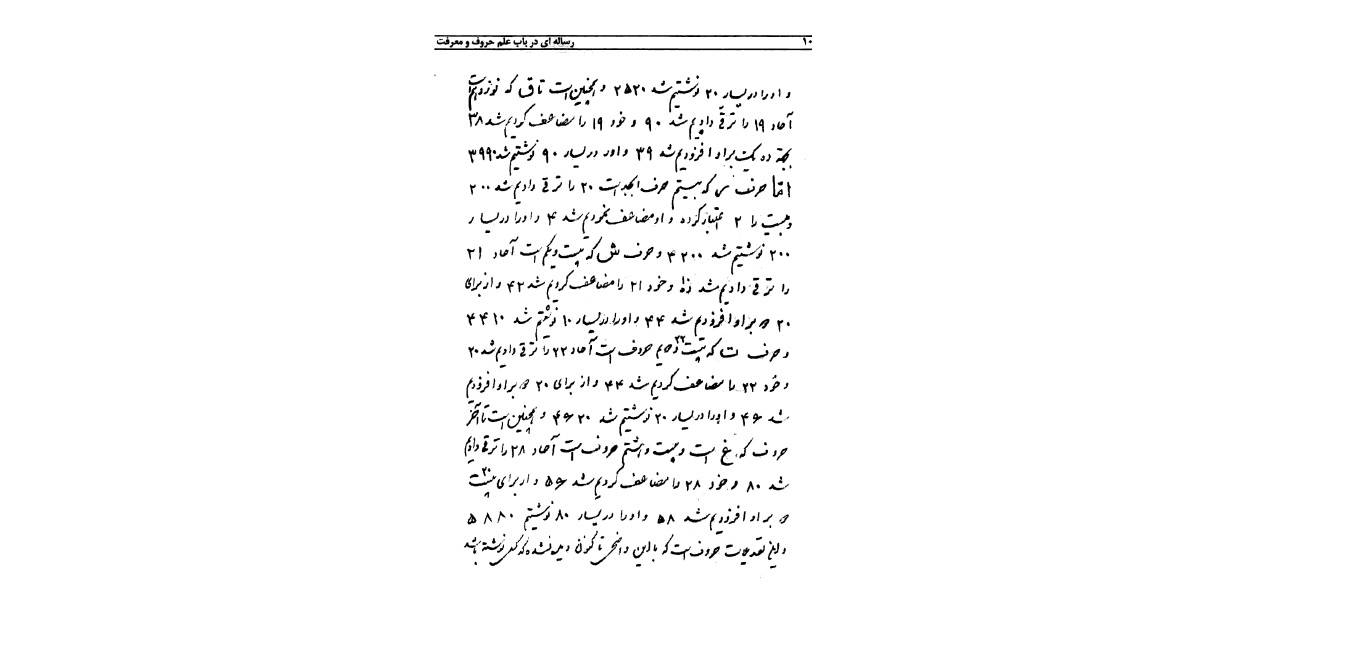 ۱۰ رساله ای در باب علم حروف و معرفت
و او را در یسار ۲۰ نوشتیم شد ۲۵۲۰ و همچنین است تا ق که نوزدهم است
آحاد ۱۹ را ترقی دادیم شد ۹۰ و خود ۱۹ را مضاعف کردیم شد ۳۸
بجهة ده یک بر او افزودیم شد ۳۹ و او در یسار ۹۰ نوشتیم شد ۳۹۹۰
اما حرف س که بیستم حرف ابجد است ۲۰ را ترقی دادیم شد ۲۰۰
و بیست را ۲ اعتبار کرده و او مضاعف نمودیم شد ۴ و او را در یسار
۲۰۰ نوشتیم شد ۴۲۰۰ و حرف ش که بیست و یکم است آحاد ۲۱
را ترقی دادیم شد و خود ۲۱ را مضاعف کردیم شد ۴۲ و از برای
۲۰ بر او افزودیم شد ۴۴ و او را در یسار ۱۰ نوشتیم شد ۴۴۱۰
و حرف ت که بیست و دویم حروف است آحاد ۲۲ را ترقی دادیم شد ۲۰
و خود ۲۲ را مضاعف کردیم شد ۴۴ و از برای ۲۰ بر او افزودیم
شد ۴۶ و او را در یسار ۲۰ نوشتیم شد ۴۶۲۰ و همچنین است تا آخر
حروف که غ است و بیست و هشتم حروف است آحاد ۲۸ را ترقی دادیم
شد ۸۰ و خود ۲۸ را مضاعف کردیم شد ۵۶ و از برای بیست
بر او افزودیم شد ۵۸ و او را در یسار ۸۰ نوشتیم ۵۸۸۰
و این حروف است که باین واضحی تا کنون دیده نشده که کسی نوشته باشد